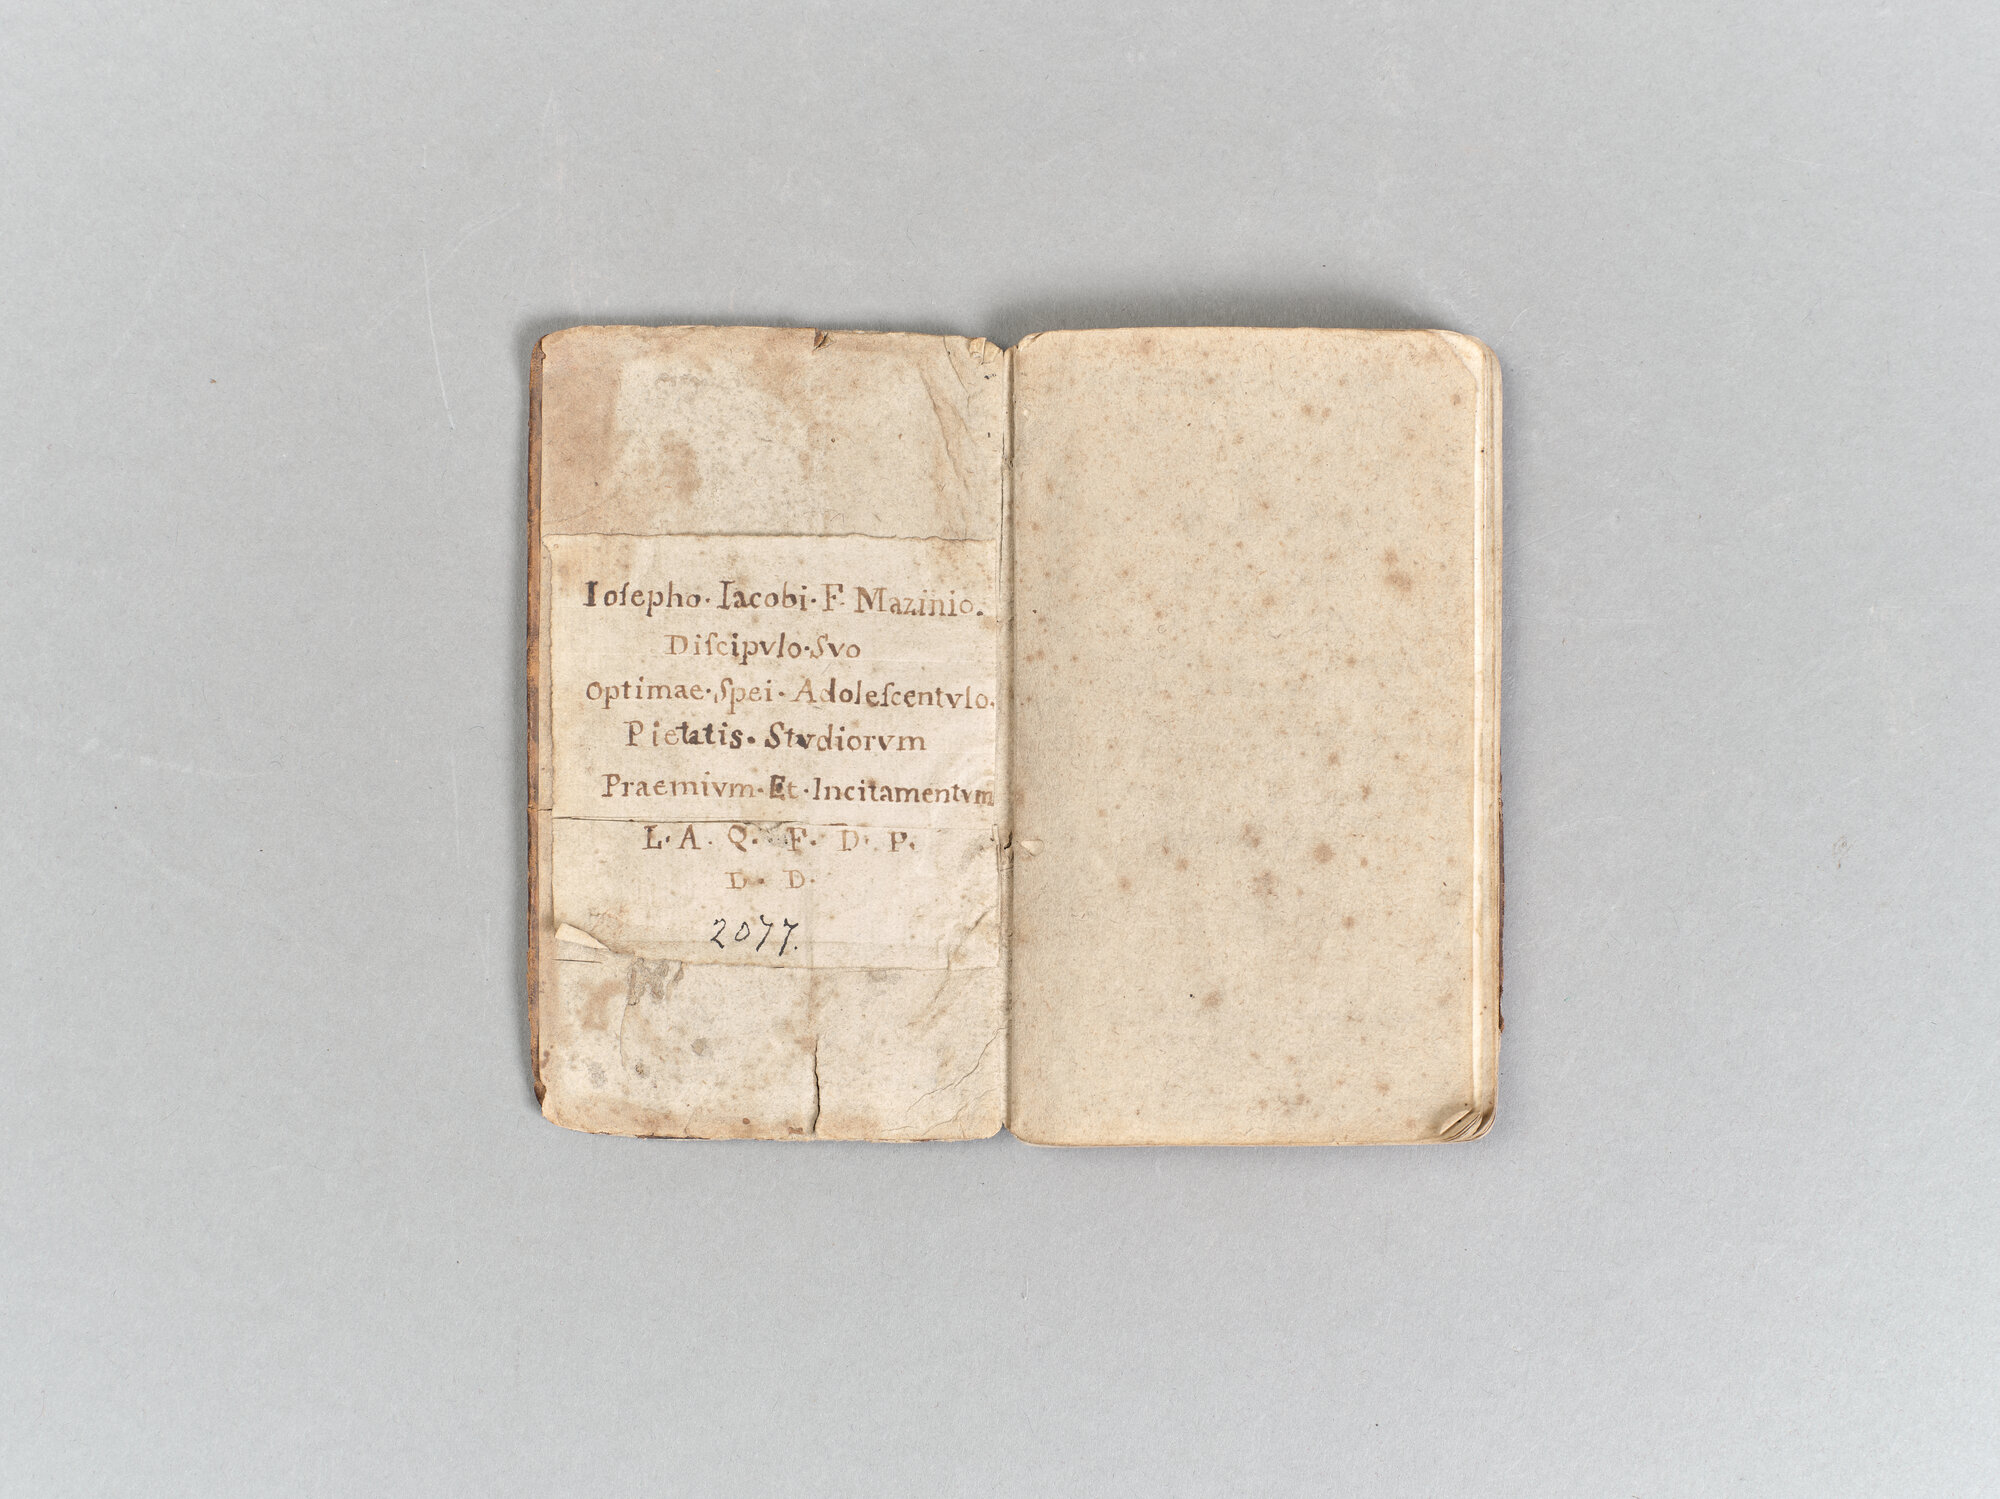 Ioſepho· Iacobi· F· Mazinio.
Diſcipvlo·Svo
Optimae·Spei· Adoleſcentvlo.
Pietatis· Stvdiorvm
Praemivm·Et·Incitamentvm
L· A· Q· F· D· P·
D· D·
2077.